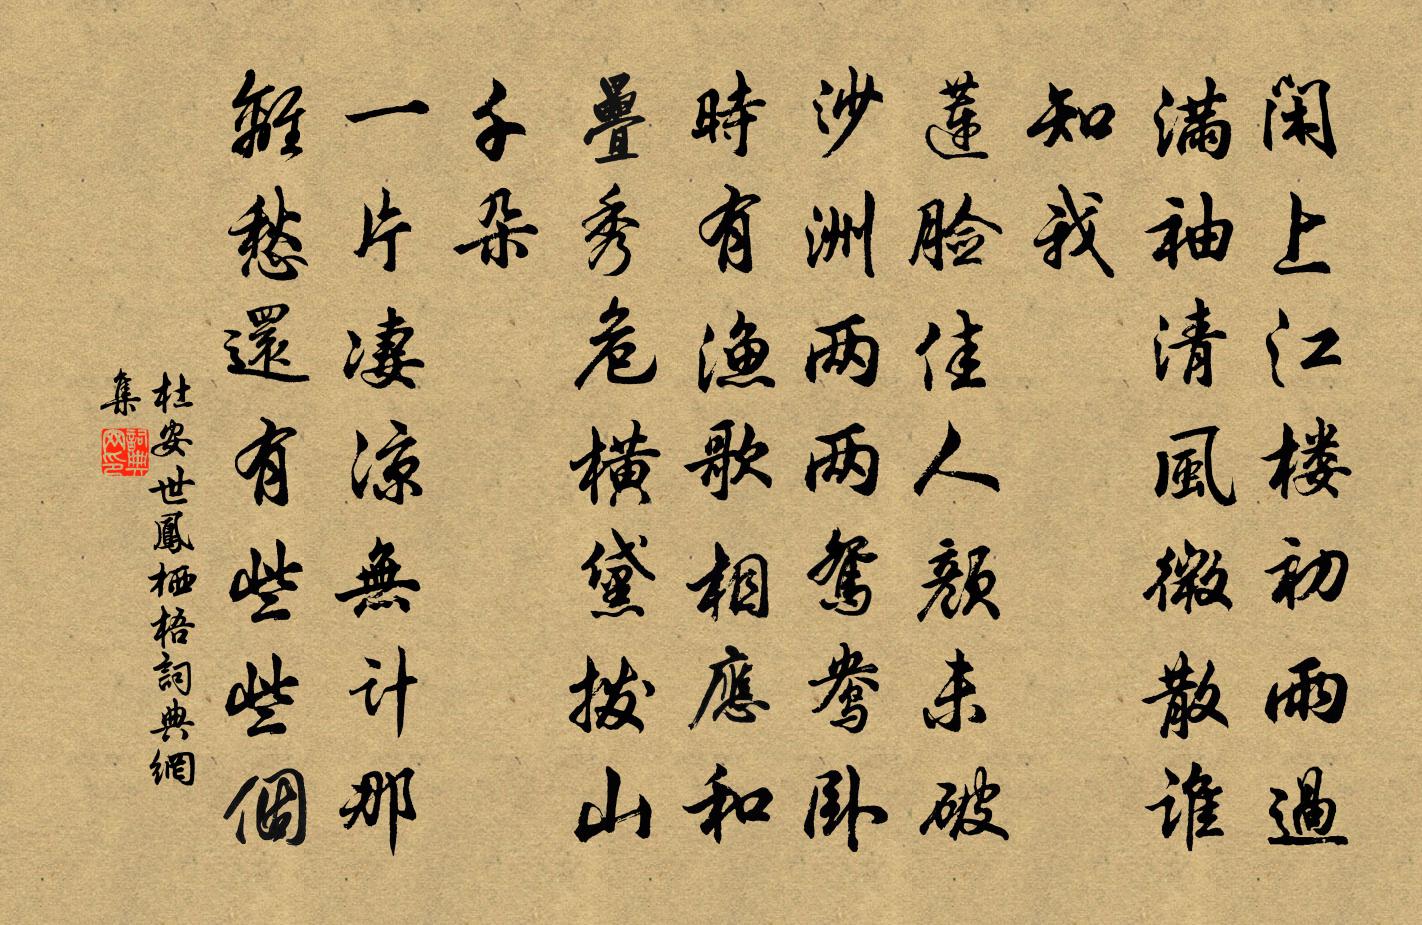 闲上江楼初雨過
满袖清風微散谁
知我
莲脸佳人颜未破
沙洲两两鸳鸯卧
時有渔歌相應和
疊秀危横黛拨山
千朵
一片凄凉無计那
離愁還有些些個
杜安世鳳栖梧詞典網
集
詞典網印